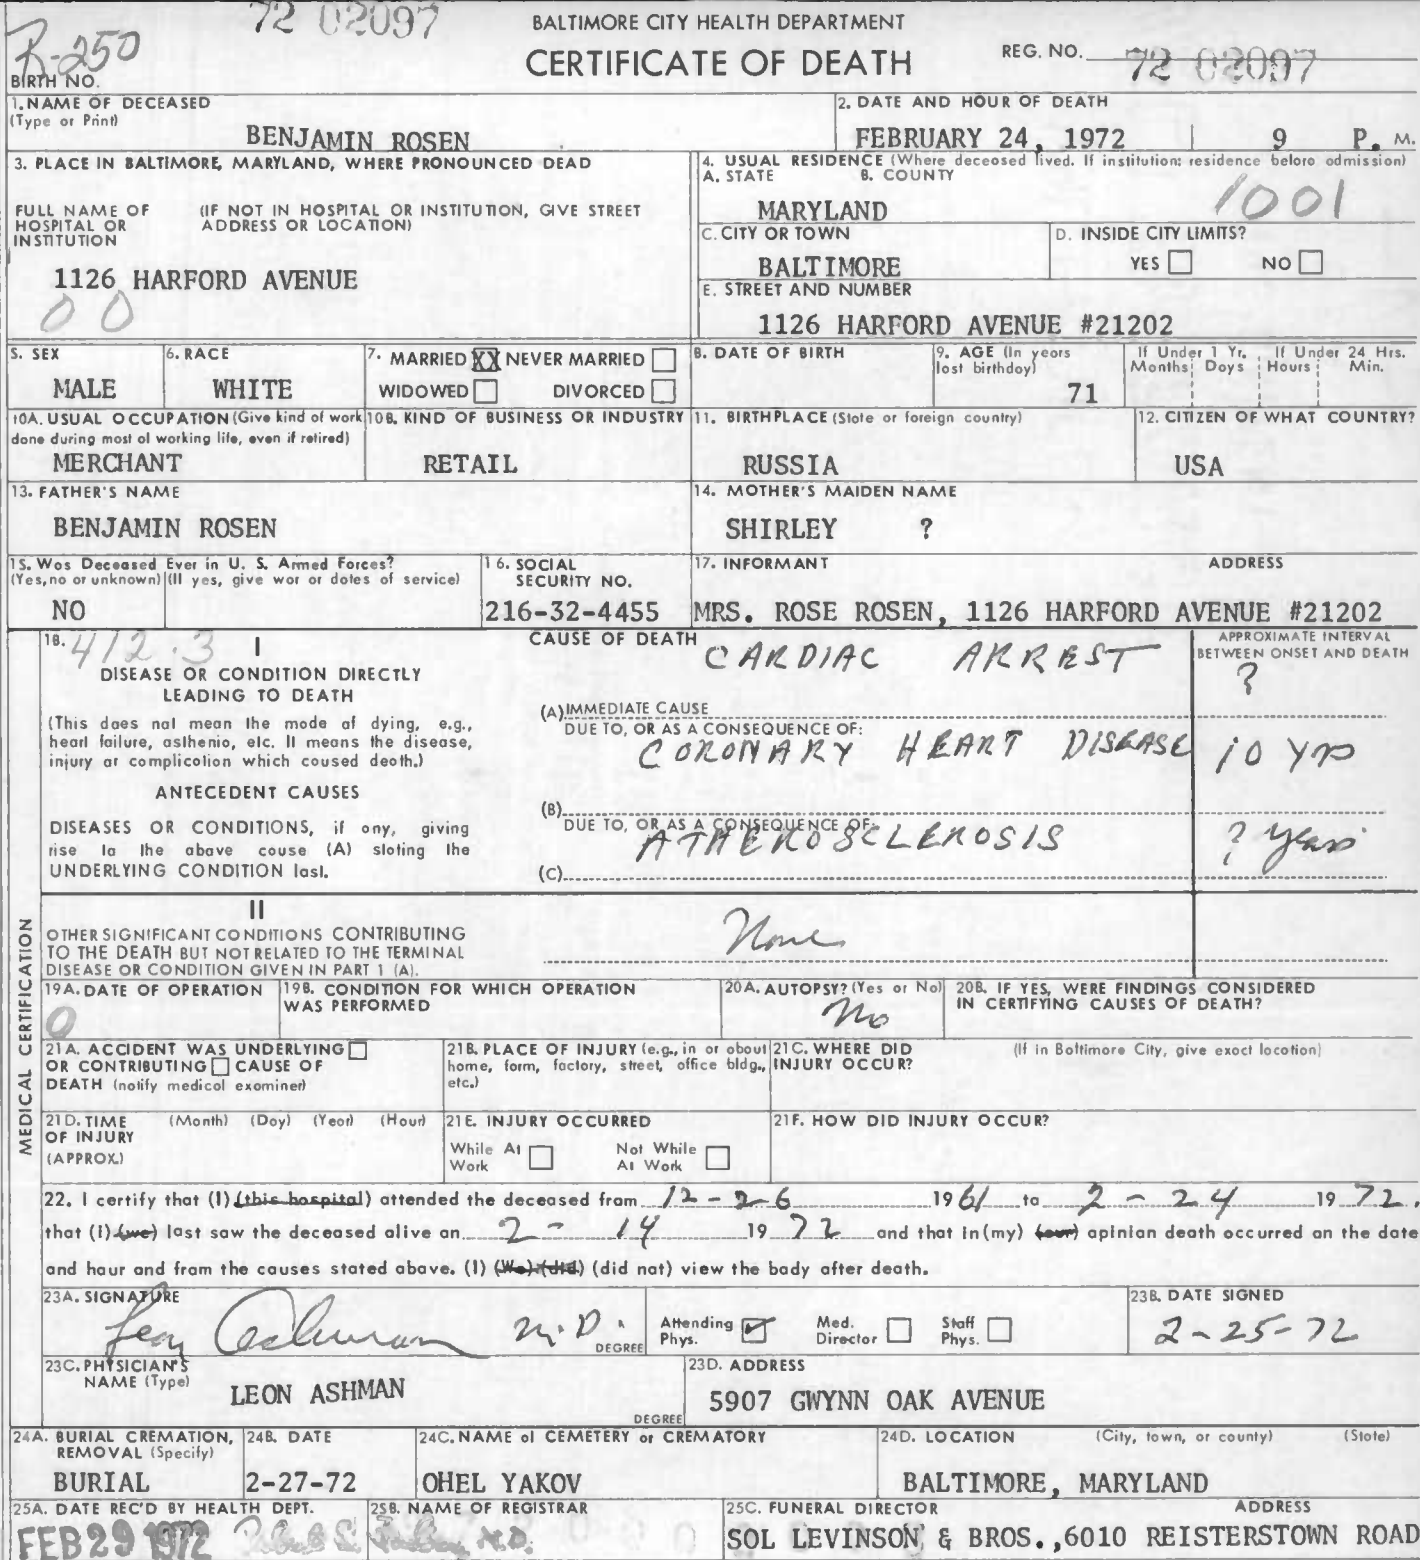 72 02097
BALTIMORE CITY HEALTH DEPARTMENT
R-250
CERTIFICATE OF DEATH
REG. NO. 72 02097
BIRTH NO.
1. NAME OF DECEASED
(Type or Print)
BENJAMIN ROSEN
2. DATE AND HOUR OF DEATH
FEBRUARY 24, 1972 9 P. M.
3. PLACE IN BALTIMORE, MARYLAND, WHERE PRONOUNCED DEAD
FULL NAME OF HOSPITAL OR INSTITUTION
(IF NOT IN HOSPITAL OR INSTITUTION, GIVE STREET ADDRESS OR LOCATION)
1126 HARFORD AVENUE
00
4. USUAL RESIDENCE (Where deceased lived. If institution: residence before admission)
A. STATE B. COUNTY
MARYLAND 1001
C. CITY OR TOWN
BALTIMORE
D. INSIDE CITY LIMITS?
YES NO
E. STREET AND NUMBER
1126 HARFORD AVENUE #21202
5. SEX
MALE
6. RACE
WHITE
7. MARRIED XX NEVER MARRIED
WIDOWED DIVORCED
8. DATE OF BIRTH
9. AGE (In years last birthday)
71
If Under 1 Yr. Months Days
If Under 24 Hrs. Hours Min.
10A. USUAL OCCUPATION (Give kind of work done during most of working life, even if retired)
MERCHANT
10B. KIND OF BUSINESS OR INDUSTRY
RETAIL
11. BIRTHPLACE (State or foreign country)
RUSSIA
12. CITIZEN OF WHAT COUNTRY?
USA
13. FATHER'S NAME
BENJAMIN ROSEN
14. MOTHER'S MAIDEN NAME
SHIRLEY ?
15. Was Deceased Ever in U. S. Armed Forces?
(Yes, no or unknown) (If yes, give war or dates of service)
NO
16. SOCIAL SECURITY NO.
216-32-4455
17. INFORMANT ADDRESS
MRS. ROSE ROSEN, 1126 HARFORD AVENUE #21202
18. 412.3
I
DISEASE OR CONDITION DIRECTLY
LEADING TO DEATH
(This does not mean the mode of dying, e.g.,
heart failure, asthenia, etc. It means the disease,
injury or complication which caused death.)
ANTECEDENT CAUSES
DISEASES OR CONDITIONS, if any, giving
rise to the above cause (A) stating the
UNDERLYING CONDITION last.
CAUSE OF DEATH
CARDIAC ARREST
(A) IMMEDIATE CAUSE
DUE TO, OR AS A CONSEQUENCE OF:
CORONARY HEART DISEASE
(B)
DUE TO, OR AS A CONSEQUENCE OF:
ATHEROSCLEROSIS
(C)
APPROXIMATE INTERVAL
BETWEEN ONSET AND DEATH
?
10 yrs
? years
MEDICAL CERTIFICATION
II
OTHER SIGNIFICANT CONDITIONS CONTRIBUTING
TO THE DEATH BUT NOT RELATED TO THE TERMINAL
DISEASE OR CONDITION GIVEN IN PART 1 (A).
None
19A. DATE OF OPERATION
0
19B. CONDITION FOR WHICH OPERATION
WAS PERFORMED
20A. AUTOPSY? (Yes or No)
No
20B. IF YES, WERE FINDINGS CONSIDERED
IN CERTIFYING CAUSES OF DEATH?
21A. ACCIDENT WAS UNDERLYING
OR CONTRIBUTING CAUSE OF
DEATH (notify medical examiner)
21B. PLACE OF INJURY (e.g., in or about
home, farm, factory, street, office bldg.,
etc.)
21C. WHERE DID
INJURY OCCUR?
(If in Baltimore City, give exact location)
21D. TIME (Month) (Day) (Year) (Hour)
OF INJURY
(APPROX.)
21E. INJURY OCCURRED
While At Work
Not While At Work
21F. HOW DID INJURY OCCUR?
22. I certify that (I) (this hospital) attended the deceased from 12-26 1961 to 2-24 1972,
that (I) (we) last saw the deceased alive on 2-14 1972 and that in (my) (our) opinion death occurred on the date
and hour and from the causes stated above. (I) (We) (did) (did not) view the body after death.
23A. SIGNATURE
Leon Ashman M.D.
DEGREE
Attending Phys.
Med. Director
Staff Phys.
23B. DATE SIGNED
2-25-72
23C. PHYSICIAN'S
NAME (Type)
LEON ASHMAN
DEGREE
23D. ADDRESS
5907 GWYNN OAK AVENUE
24A. BURIAL CREMATION,
REMOVAL (Specify)
BURIAL
24B. DATE
2-27-72
24C. NAME of CEMETERY or CREMATORY
OHEL YAKOV
24D. LOCATION (City, town, or county) (State)
BALTIMORE, MARYLAND
25A. DATE REC'D BY HEALTH DEPT.
FEB 29 1972
25B. NAME OF REGISTRAR
Robert E. M.D.
25C. FUNERAL DIRECTOR ADDRESS
SOL LEVINSON & BROS., 6010 REISTERSTOWN ROAD